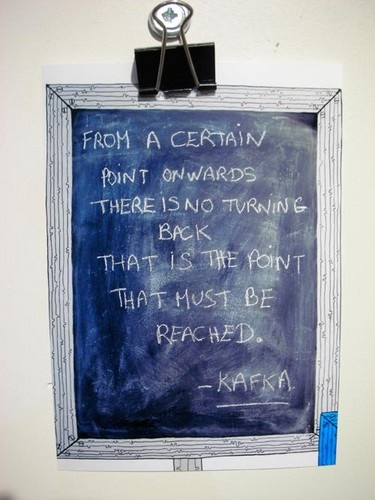 FROM A CERTAIN
POINT ONWARDS
THERE IS NO TURNING
BACK
THAT IS THE POINT
THAT MUST BE
REACHED.
-KAFKA